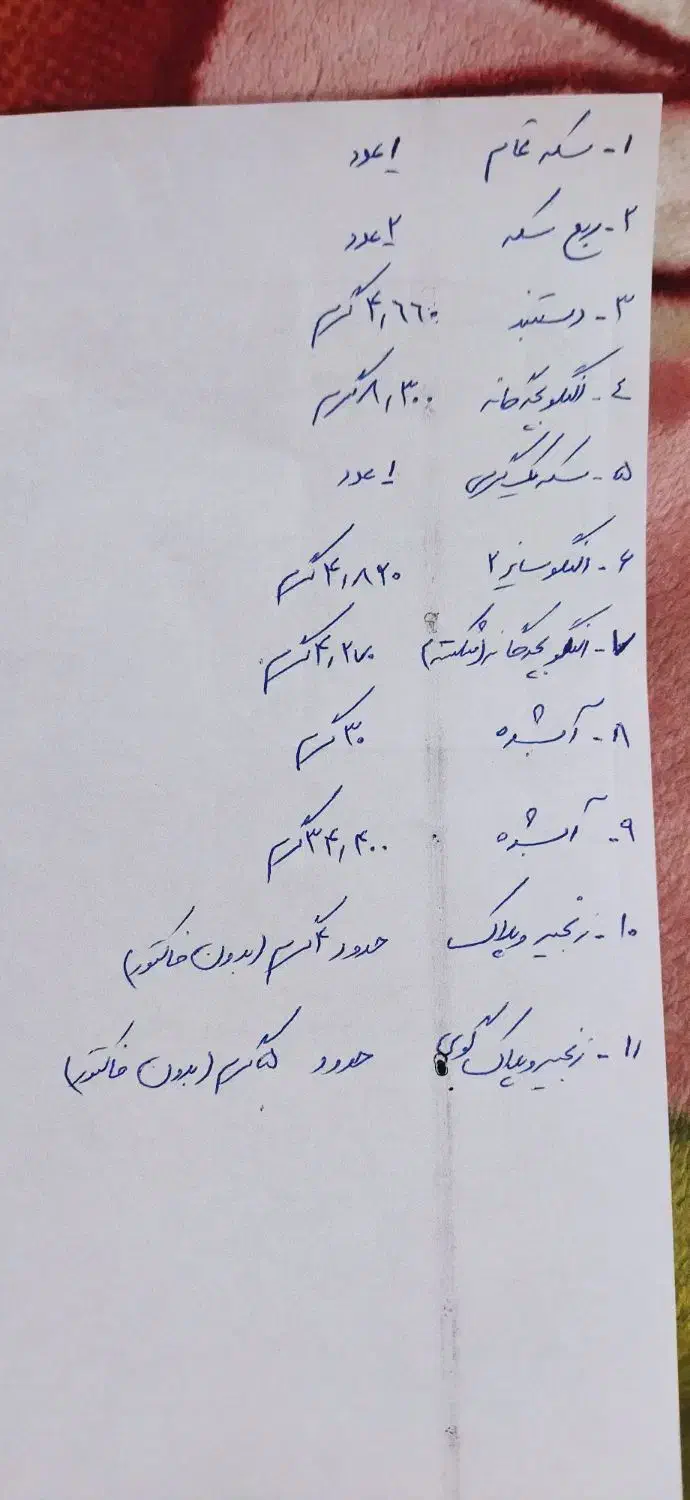 ۱- سکه تمام ۱ عدد
۲- ربع سکه ۲ عدد
۳- دستبند ۴,۶۶۰ گرم
۴- النگو بچه‌گانه ۸,۳۰۰ گرم
۵- سکه یک گرمی ۱ عدد
۶- النگو سایز ۲ ۴,۸۲۰ گرم
۷- النگو بچه‌گانه (شکسته) ۴,۲۷۰ گرم
۸- آبشده ۳۰ گرم
۹- آبشده ۳۴,۴۰۰ گرم
۱۰- زنجیر و پلاک حدود ۴ گرم (بدون فاکتور)
۱۱- زنجیر و پلاک گوی حدود ۵ گرم (بدون فاکتور)